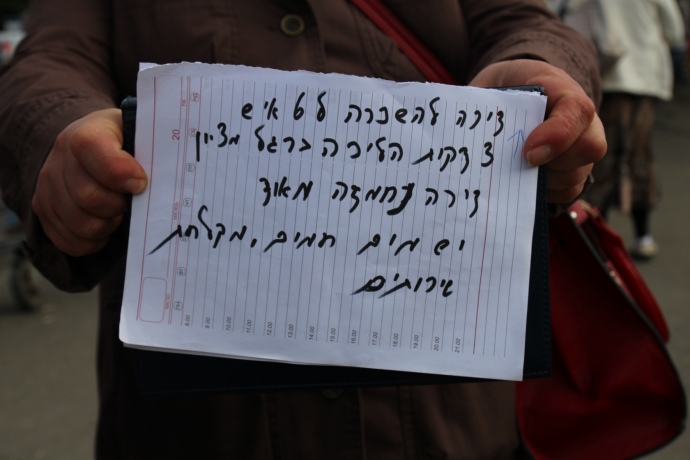 דירה להשכרה ל 6 איש
3 דקות הליכה ברגל מציון
דירה נחמדה מאוד
יש מים חמים, מקלחת
שירותים
20
8.00 9.00 10.00 11.00 12.00 13.00 14.00 15.00 16.00 17.00 18.00 19.00 20.00 21.00